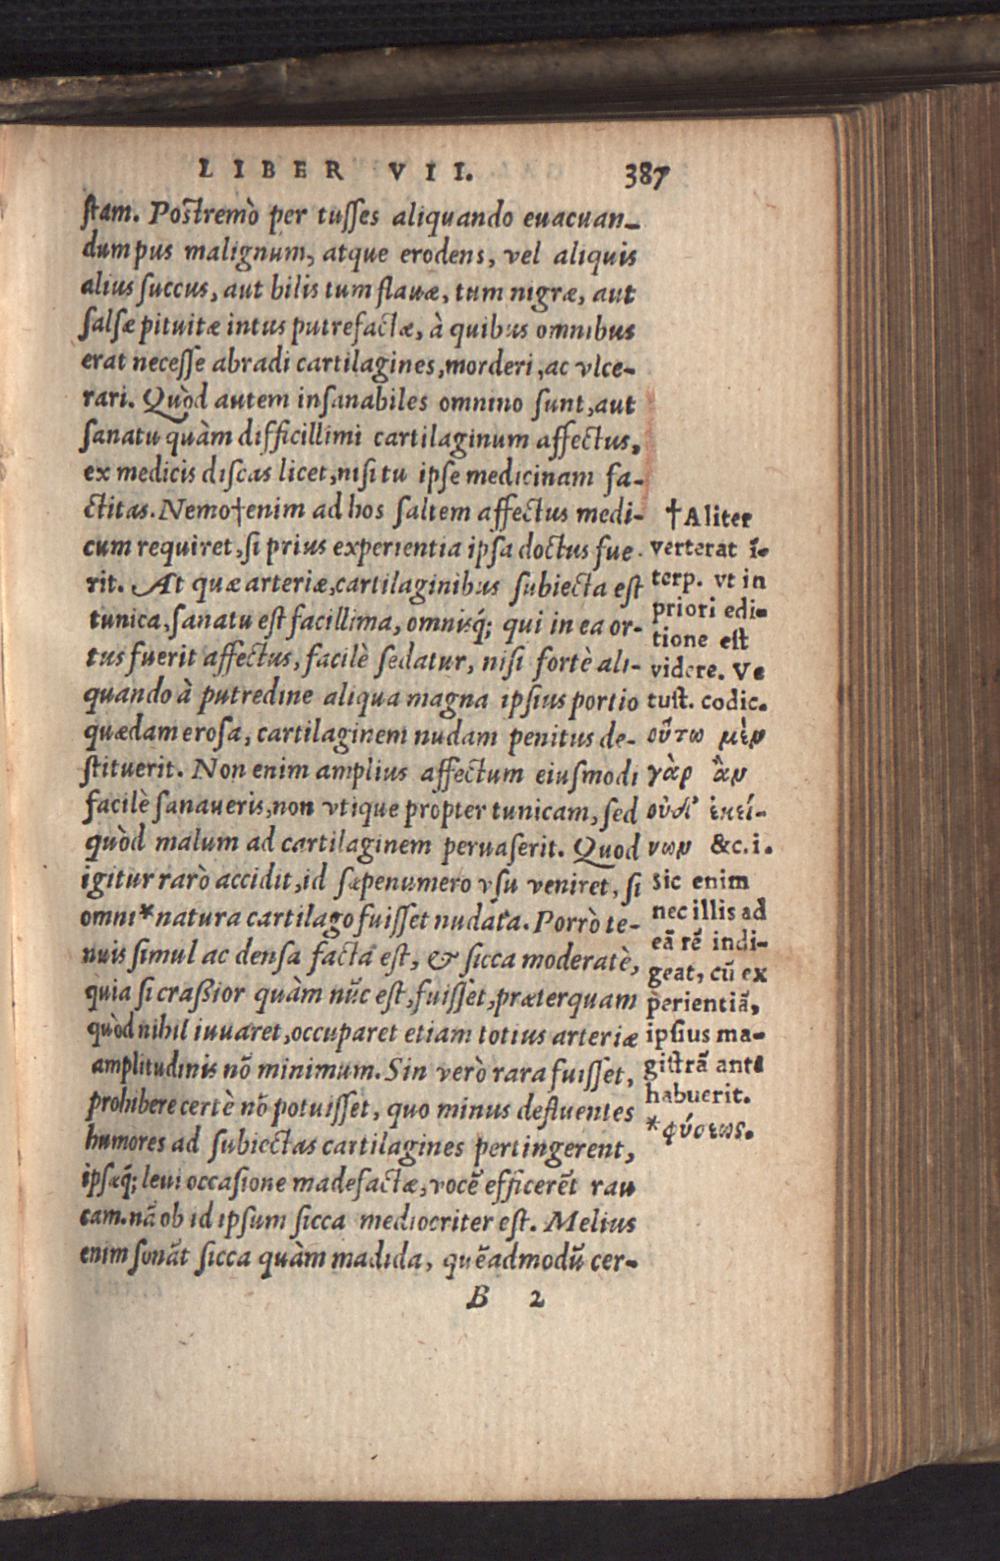 LIBER VII. 387
stam. Postremò per tusses aliquando euacuan-
dum pus malignum, atque erodens, vel aliquis
alius succus, aut bilis tum flauæ, tum nigræ, aut
salsæ pituitæ intus putrefactæ, à quibus omnibus
erat necesse abradi cartilagines, morderi, ac vlce-
rari. Quòd autem insanabiles omnino sunt, aut
sanatu quàm difficillimi cartilaginum affectus,
ex medicis discas licet, nisi tu ipse medicinam fa-
ctitas. Nemo†enim ad hos saltem affectus medi-
cum requiret, si prius experientia ipsa doctus fue-
rit. At quæ arteriæ, cartilaginibus subiecta est
tunica, sanatu est facillima, omnisq́; qui in ea or-
tus fuerit affectus, facilè sedatur, nisi fortè ali-
quando à putredine aliqua magna ipsius portio
quædam erosa, cartilaginem nudam penitus de-
stituerit. Non enim amplius affectum eiusmodi
facilè sanaueris, non vtique propter tunicam, sed
quòd malum ad cartilaginem peruaserit. Quod
igitur rarò accidit, id sæpenumero vsu veniret, si
omni*natura cartilago fuisset nudata. Porrò te-
nuis simul ac densa facta est, & sicca moderatè,
quia si craßior quàm nūc est, fuisset, præterquam
quòd nihil iuuaret, occuparet etiam totius arteriæ
amplitudinis nō minimum. Sin verò rara fuisset,
prohibere certè nō potuisset, quo minus defluentes
humores ad subiectas cartilagines pertingerent,
ipsæq́; leui occasione madefactæ, vocē efficerēt rau
cam. nā ob id ipsum sicca mediocriter est. Melius
enim sonāt sicca quàm madida, quēadmodū cer-
B 2
†Aliter
verterat ī-
terp. vt in
priori edi-
tione est
videre. Ve
tust. codic.
οὕτω μὲν
γὰρ ἂν
οὐδ' ἐκεί-
νων &c. i.
Sic enim
nec illis ad
eā rē indi-
geat, cū ex
perientiā,
ipsius ma-
gistrā ante
habuerit.
*φύσεως.